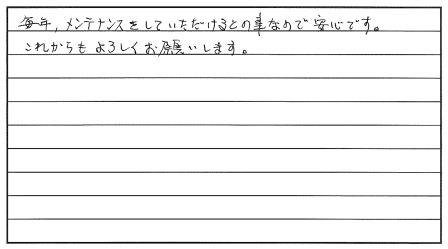 毎年，メンテナンスをしていただけるとの事なので安心です。
これからもよろしくお願いします。